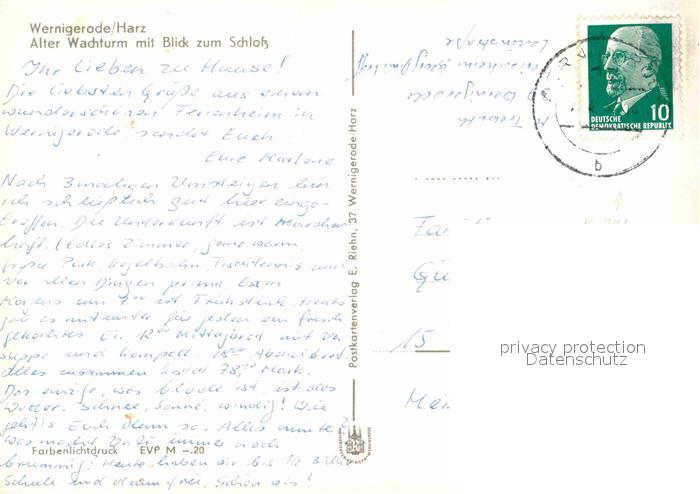 Wernigerode/Harz
Alter Wachturm mit Blick zum Schloß
Ihr Lieben zu Hause!
Die liebsten Grüße aus einem
wunderschönen Ferienheim in
Wernigerode sendet Euch
Eure Marlene
Nach 3maligen Umsteigen bin
ich schließlich gut hier einge-
troffen. Die Unterkunft ist Märchen
haft. (tolles Zimmer, ganz warm,
großer Park, Kegelbahn, Tischtennis und
vor allen Dingen prima Essen
Morgens um 8 ist Frühstück. Heute
gab es mitunter für jeden ein frisch
gekochtes Ei. 12 Mittagbrot mit Vor
suppe und Kompott. 18 Abendbrot.
Alles zusammen kostet 78, Mark.
Das einzige, was blöde ist, ist das
Wetter. Schnee, Sonne, windig! Wie
geht's Euch denn so. Alles munter?
Was macht Vati immer noch
brummig? Heute haben wir bis 1/2 3 Uhr
Schule und dann frei. Schön was!
Farbenlichtdruck EVP M –.20
Postkartenverlag E. Riehn, 37 Wernigerode/Harz
Wernigerode
10
DEUTSCHE
DEMOKRATISCHE REPUBLIK
b
15
privacy protection
Datenschutz